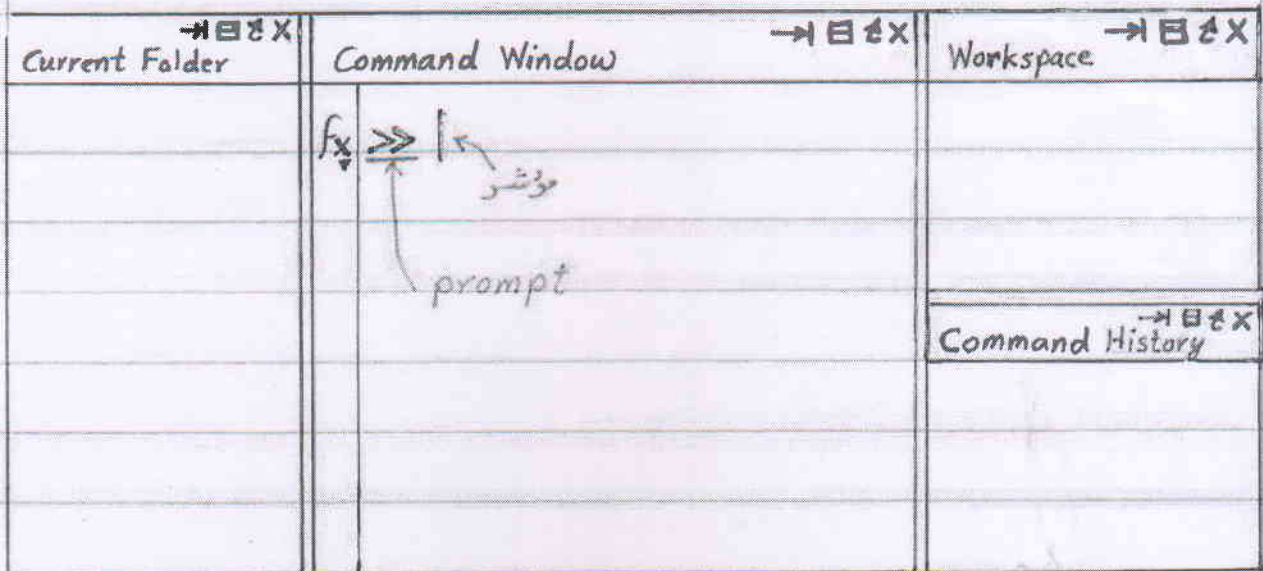 Current Folder
Command Window
fx >> |
مؤشر
prompt
Workspace
Command History